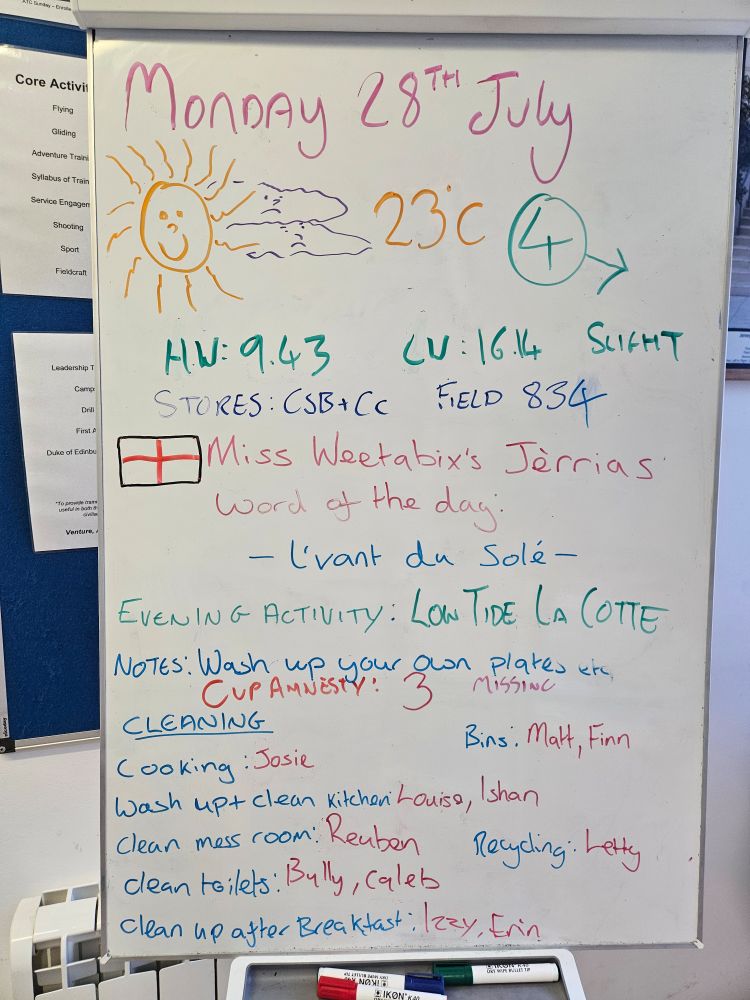 ATC Sunday – Enrolle
Core Activi
Flying
Gliding
Adventure Traini
Syllabus of Train
Service Engagem
Shooting
Sport
Fieldcraft
Leadership T
Camp
Drill
First A
Duke of Edinbu
"To provide traini
useful in both th
civilia
Venture, A
MONDAY 28TH July
23°C 4
H.W: 9.43 LW: 16.14 SLIGHT
STORES: CSB+CC FIELD 834
Miss Weetabix's Jèrrias
Word of the day:
– L'vant du Solé –
EVENING ACTIVITY: LOW TIDE LA COTTE
NOTES: Wash up your own plates etc.
CUP AMNESTY: 3 MISSING
CLEANING
Bins: Matt, Finn
Cooking: Josie
Wash up + clean kitchen: Louise, Ishan
Clean mess room: Reuben Recycling: Letty
Clean toilets: Bully, Caleb
Clean up after Breakfast: Izzy, Erin
IKON K40
IKON K40